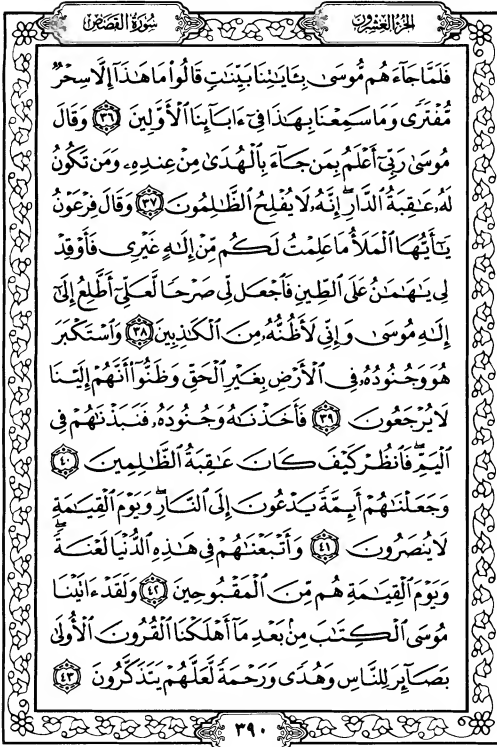 سُورَةُ القَصَصِ الجُزءُ العِشْرُونَ
فَلَمَّا جَآءَهُم مُّوسَىٰ بِـَٔايَـٰتِنَا بَيِّنَـٰتٍ قَالُوا۟ مَا هَـٰذَآ إِلَّا سِحْرٌ
مُّفْتَرًى وَمَا سَمِعْنَا بِهَـٰذَا فِىٓ ءَابَآئِنَا ٱلْأَوَّلِينَ ٣٦ وَقَالَ
مُوسَىٰ رَبِّىٓ أَعْلَمُ بِمَن جَآءَ بِٱلْهُدَىٰ مِنْ عِندِهِۦ وَمَن تَكُونُ
لَهُۥ عَـٰقِبَةُ ٱلدَّارِ ۖ إِنَّهُۥ لَا يُفْلِحُ ٱلظَّـٰلِمُونَ ٣٧ وَقَالَ فِرْعَوْنُ
يَـٰٓأَيُّهَا ٱلْمَلَأُ مَا عَلِمْتُ لَكُم مِّنْ إِلَـٰهٍ غَيْرِى فَأَوْقِدْ
لِى يَـٰهَـٰمَـٰنُ عَلَى ٱلطِّينِ فَٱجْعَل لِّى صَرْحًا لَّعَلِّىٓ أَطَّلِعُ إِلَىٰٓ
إِلَـٰهِ مُوسَىٰ وَإِنِّى لَأَظُنُّهُۥ مِنَ ٱلْكَـٰذِبِينَ ٣٨ وَٱسْتَكْبَرَ
هُوَ وَجُنُودُهُۥ فِى ٱلْأَرْضِ بِغَيْرِ ٱلْحَقِّ وَظَنُّوٓا۟ أَنَّهُمْ إِلَيْنَا
لَا يُرْجَعُونَ ٣٩ فَأَخَذْنَـٰهُ وَجُنُودَهُۥ فَنَبَذْنَـٰهُمْ فِى
ٱلْيَمِّ ۖ فَٱنظُرْ كَيْفَ كَانَ عَـٰقِبَةُ ٱلظَّـٰلِمِينَ ٤٠
وَجَعَلْنَـٰهُمْ أَئِمَّةً يَدْعُونَ إِلَى ٱلنَّارِ ۖ وَيَوْمَ ٱلْقِيَـٰمَةِ
لَا يُنصَرُونَ ٤١ وَأَتْبَعْنَـٰهُمْ فِى هَـٰذِهِ ٱلدُّنْيَا لَعْنَةً ۖ
وَيَوْمَ ٱلْقِيَـٰمَةِ هُم مِّنَ ٱلْمَقْبُوحِينَ ٤٢ وَلَقَدْ ءَاتَيْنَا
مُوسَى ٱلْكِتَـٰبَ مِنۢ بَعْدِ مَآ أَهْلَكْنَا ٱلْقُرُونَ ٱلْأُولَىٰ
بَصَآئِرَ لِلنَّاسِ وَهُدًى وَرَحْمَةً لَّعَلَّهُمْ يَتَذَكَّرُونَ ٤٣
٣٩٠